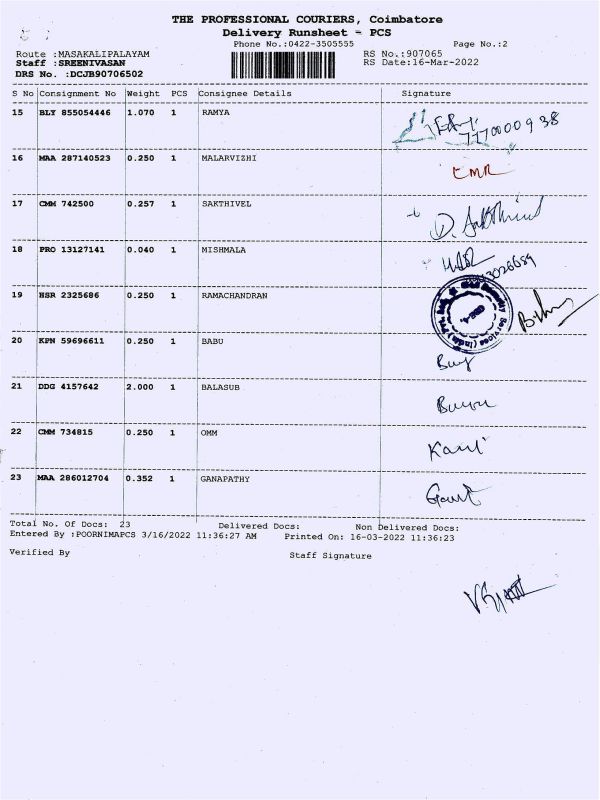 THE PROFESSIONAL COURIERS, Coimbatore
Delivery Runsheet - PCS
Phone No.:0422-3505555 Page No.:2
Route :MASAKALIPALAYAM RS No.:907065
Staff :SREENIVASAN RS Date:16-Mar-2022
DRS No. :DCJB90706502
S No Consignment No Weight PCS Consignee Details Signature
15 BLY 855054446 1.070 1 RAMYA
16 MAA 287140523 0.250 1 MALARVIZHI
17 CMM 742500 0.257 1 SAKTHIVEL
18 PRO 13127141 0.040 1 MISHMALA
19 HSR 2325686 0.250 1 RAMACHANDRAN
20 KPN 59696611 0.250 1 BABU
21 DDG 4157642 2.000 1 BALASUB
22 CMM 734815 0.250 1 OMM
23 MAA 286012704 0.352 1 GANAPATHY
Total No. Of Docs: 23 Delivered Docs: Non Delivered Docs:
Entered By :POORNIMAPCS 3/16/2022 11:36:27 AM Printed On: 16-03-2022 11:36:23
Verified By Staff Signature